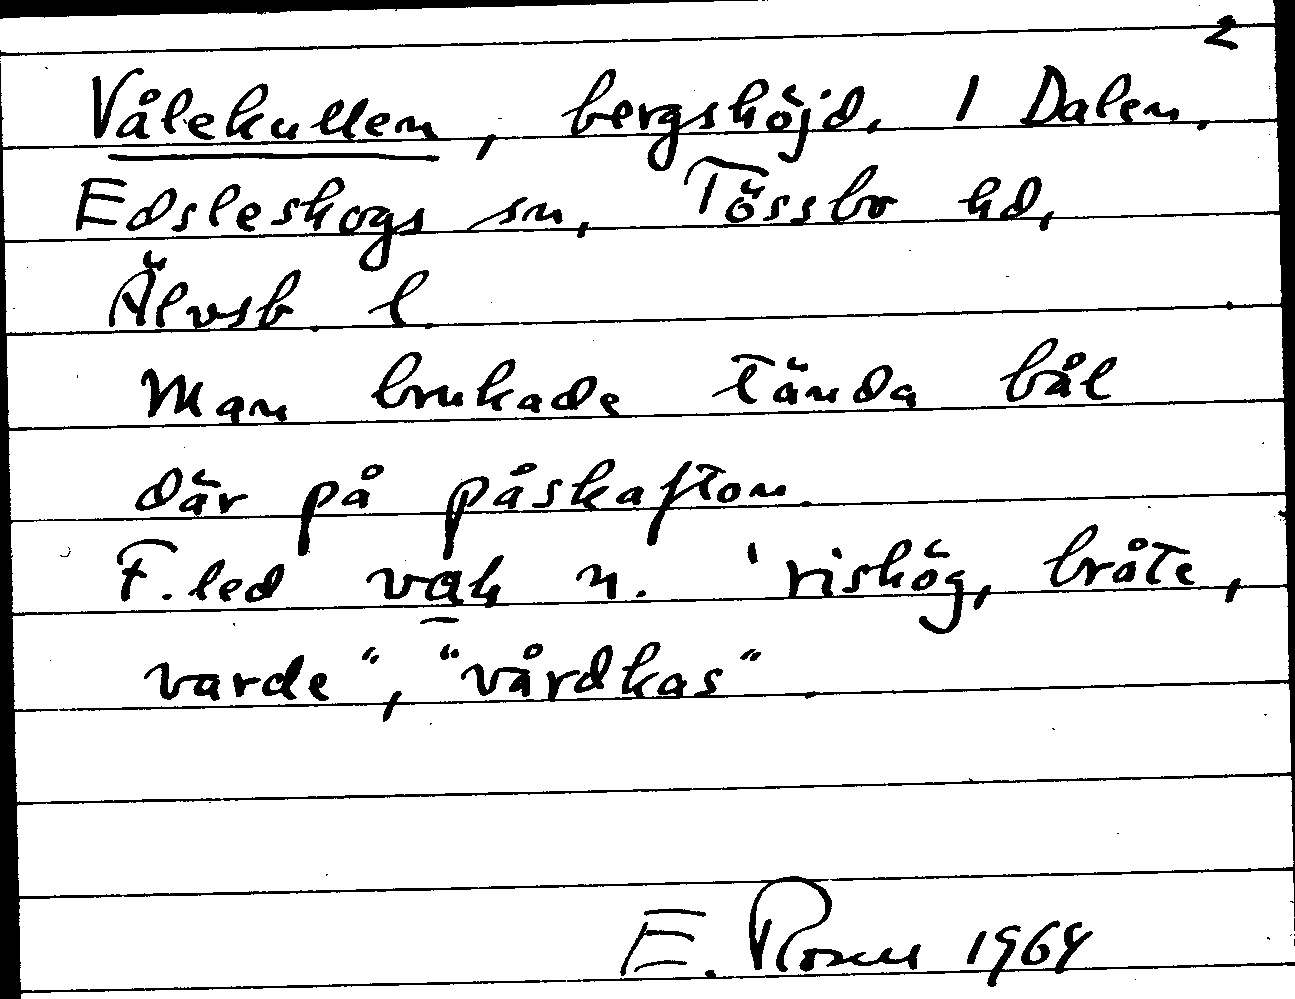 2
Vålekullen, bergshöjd. 1 Dalen.
Edsleskogs sn, Tössbo hd,
Älvsb. l.
Man brukade tända bål
där på påskafton.
F. led n. 'rishög, bråte,
varde", "vårdkas".
E. 1964